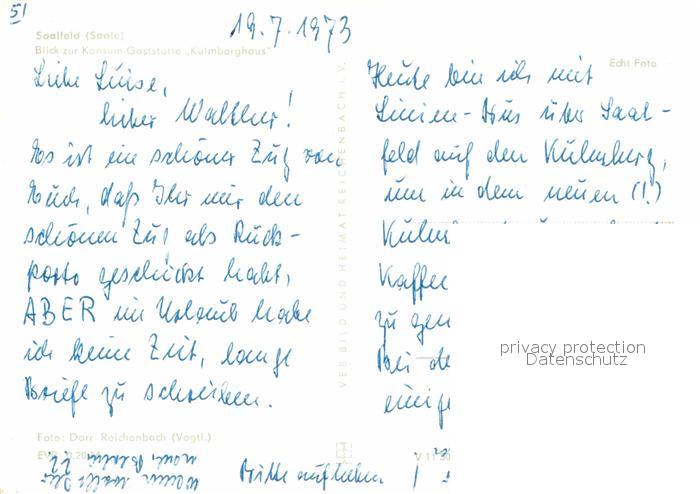 51
19.7.1973
Saalfeld (Saale)
Blick zur Konsum-Gaststätte „Kulmberghaus"
Echt Foto
Liebe Luise,
lieber Walther!
Es ist ein schöner Zug von
Euch, daß Ihr mir den
schönen Zug als Rück-
porto geschickt habt,
ABER im Urlaub habe
ich keine Zeit, lange
Briefe zu schreiben.
Heute bin ich mit
Linien-Bus über Saal-
feld auf den Kulmberg,
um in dem neuen (!)
Kulm
Kaffee
zu gen
Bei de
einige
VEB BILD UND HEIMAT REICHENBACH I. V.
Foto: Darr Reichenbach (Vogtl.)
V 11
Bitte aufheben!
privacy protection
Datenschutz